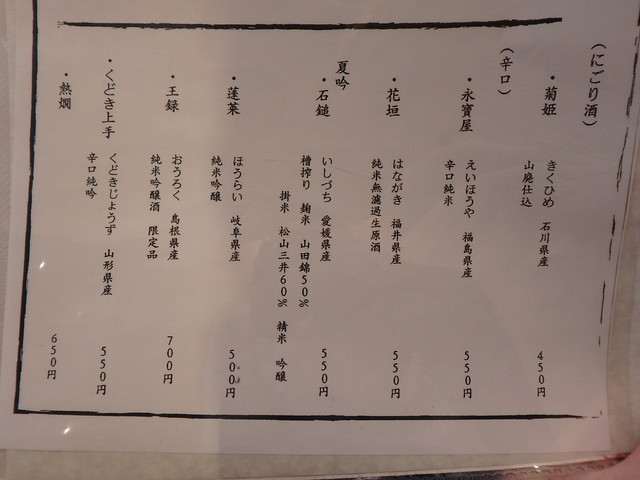 (にごり酒)
・菊姫
きくひめ 石川県産
山廃仕込
450円
(辛口)
・永寶屋
えいほうや 福島県産
辛口純米
550円
・花垣
はながき 福井県産
純米無濾過生原酒
550円
夏吟
・石鎚
いしづち 愛媛県産
槽搾り 麹米 山田錦50%
掛米 松山三井60% 精米 吟醸
550円
・蓬莱
ほうらい 岐阜県産
純米吟醸
500円
・王録
おうろく 島根県産
純米吟醸酒 限定品
700円
・くどき上手
くどきじょうず 山形県産
辛口純吟
550円
・熱燗
650円